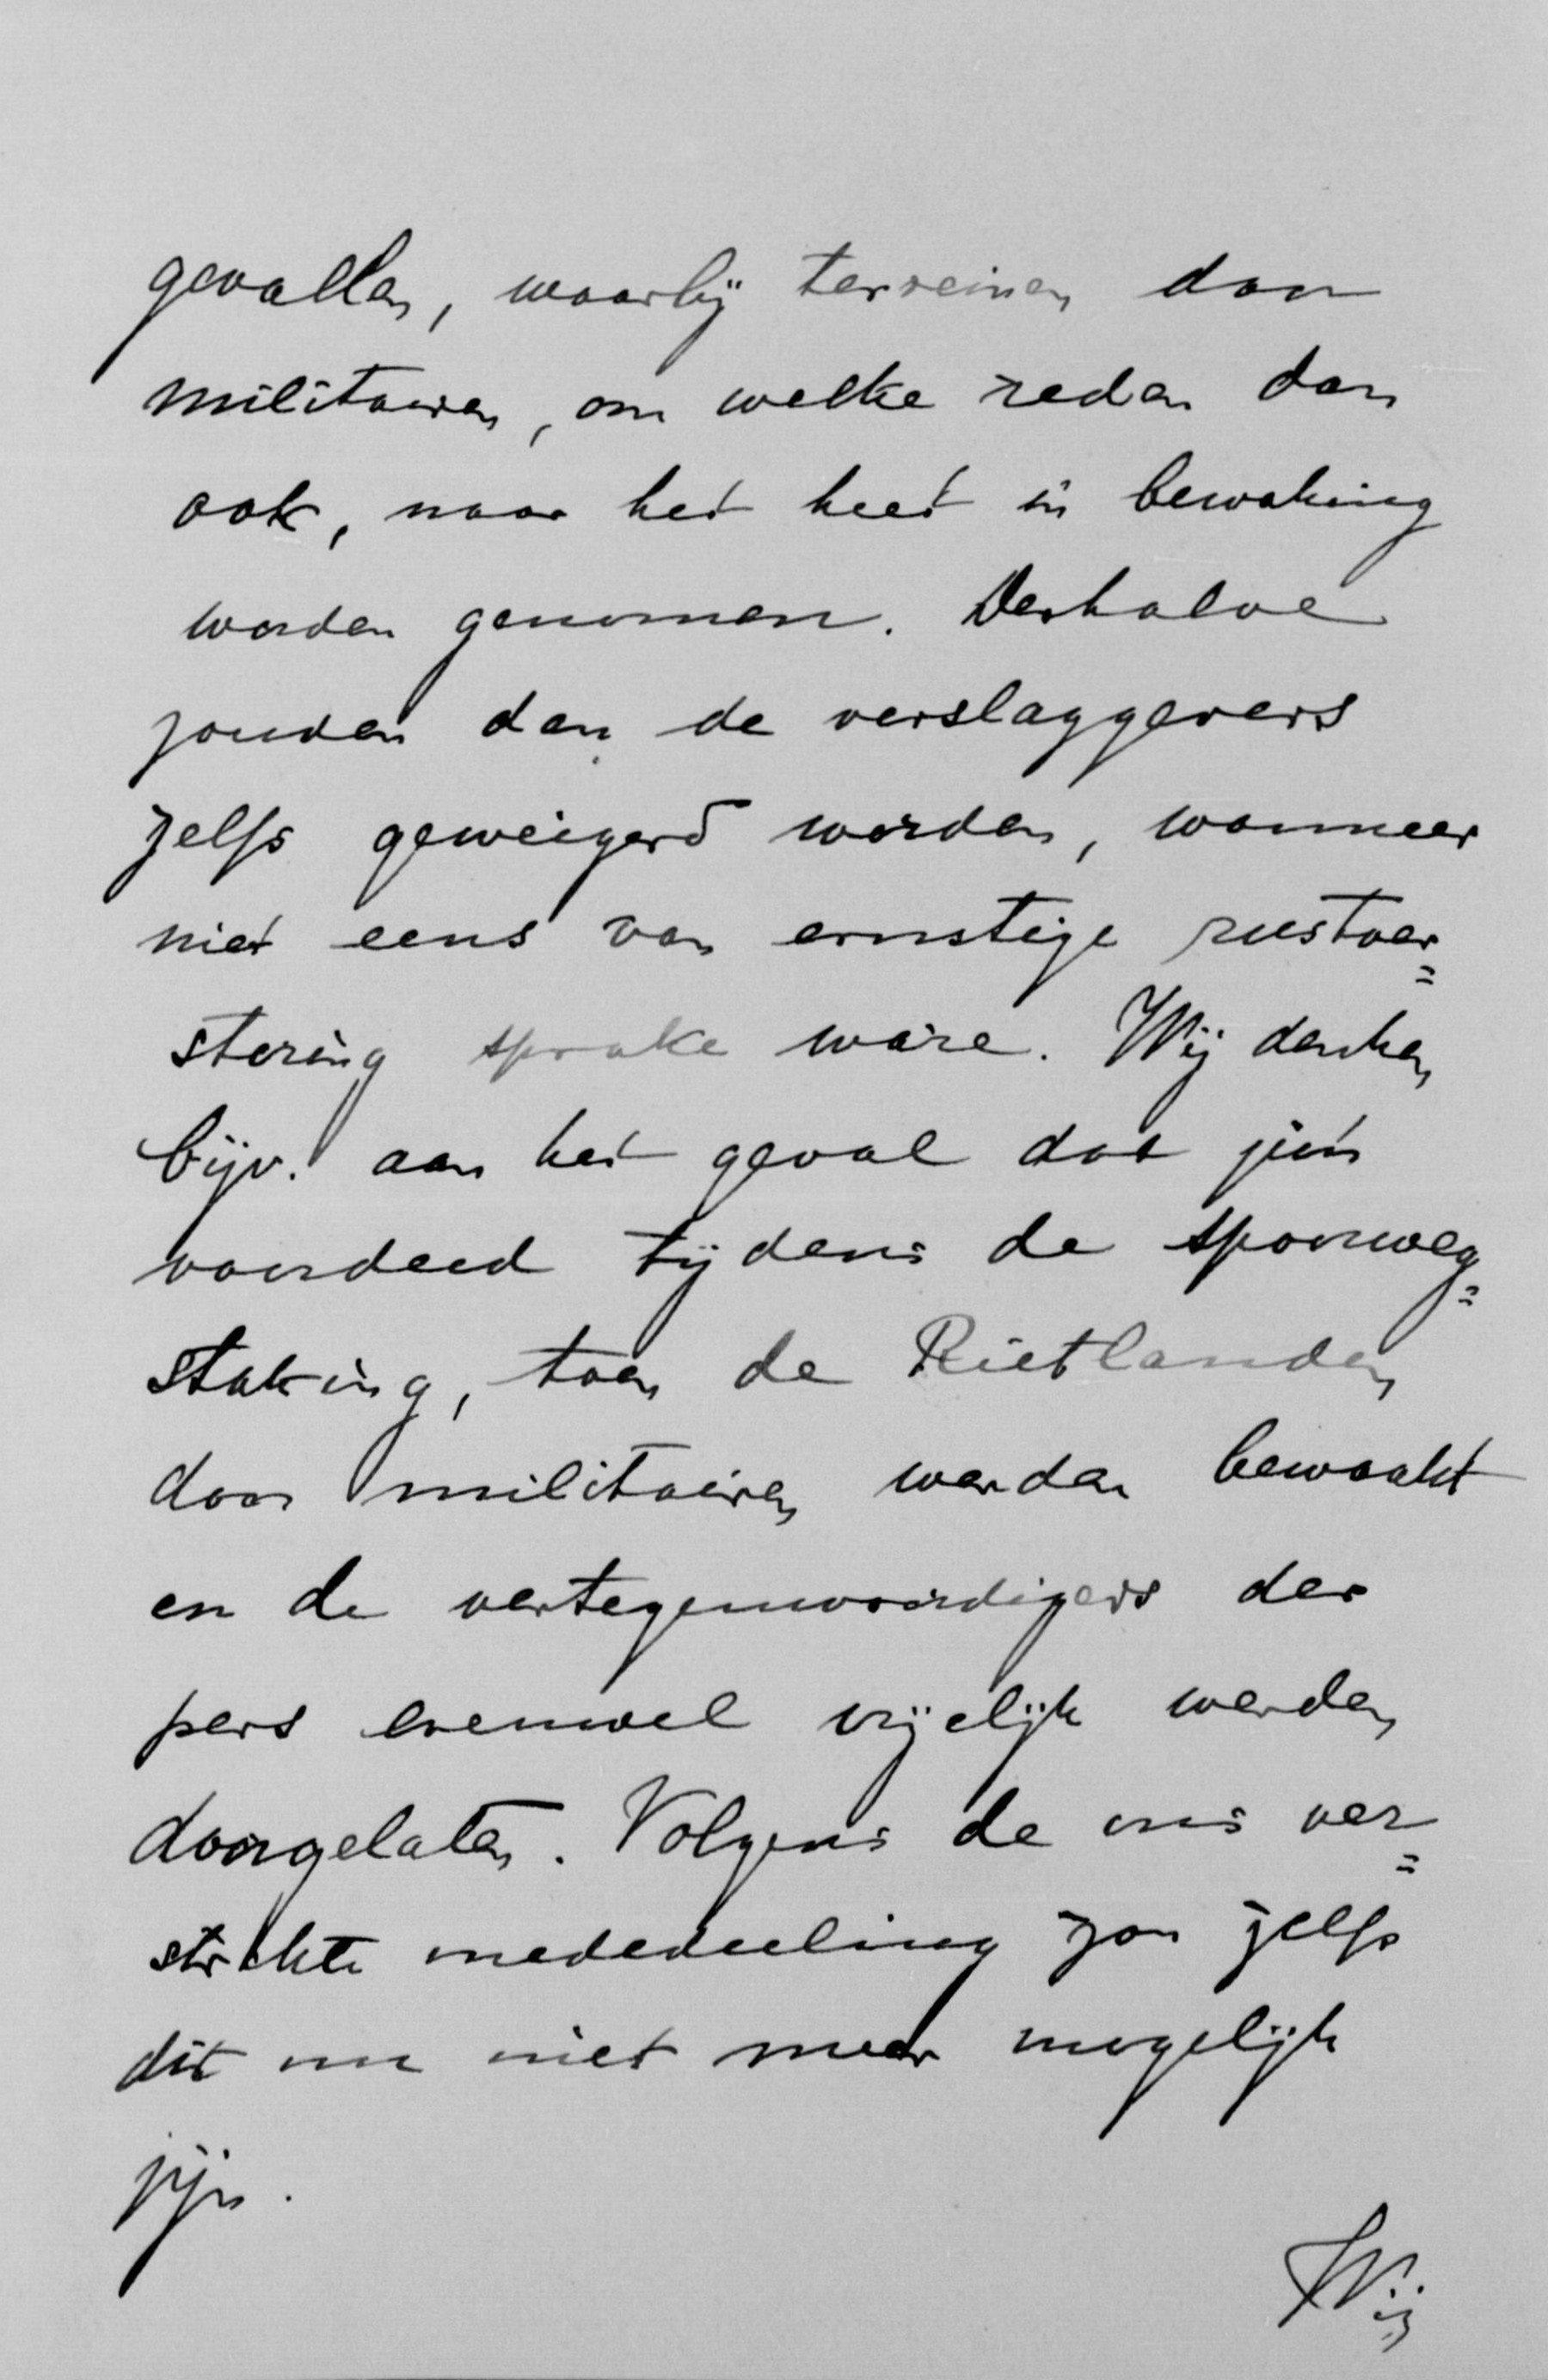 gevallen, waarbij terreinen door
militairen, om welke reden dan
ook, naar het heet in bewaking
worden genomen. Derhalve
zouden dan de verslaggevers
zelfs geweigerd worden, wanneer
niet eens van ernstige rustver=
storing sprake ware. Wij denken
bijv. aan het geval dat zich
voordeed tijdens de spoorweg=
staking, toen de Rietlanden
door militairen werden bewaakt
en de vertegenwoordigers der
pers evenwel vrijelijk werden
doorgelaten. Volgens de ons ver=
strekte mededeeling zou zelfs
dit nu niet meer mogelijk
zijn.
Wij